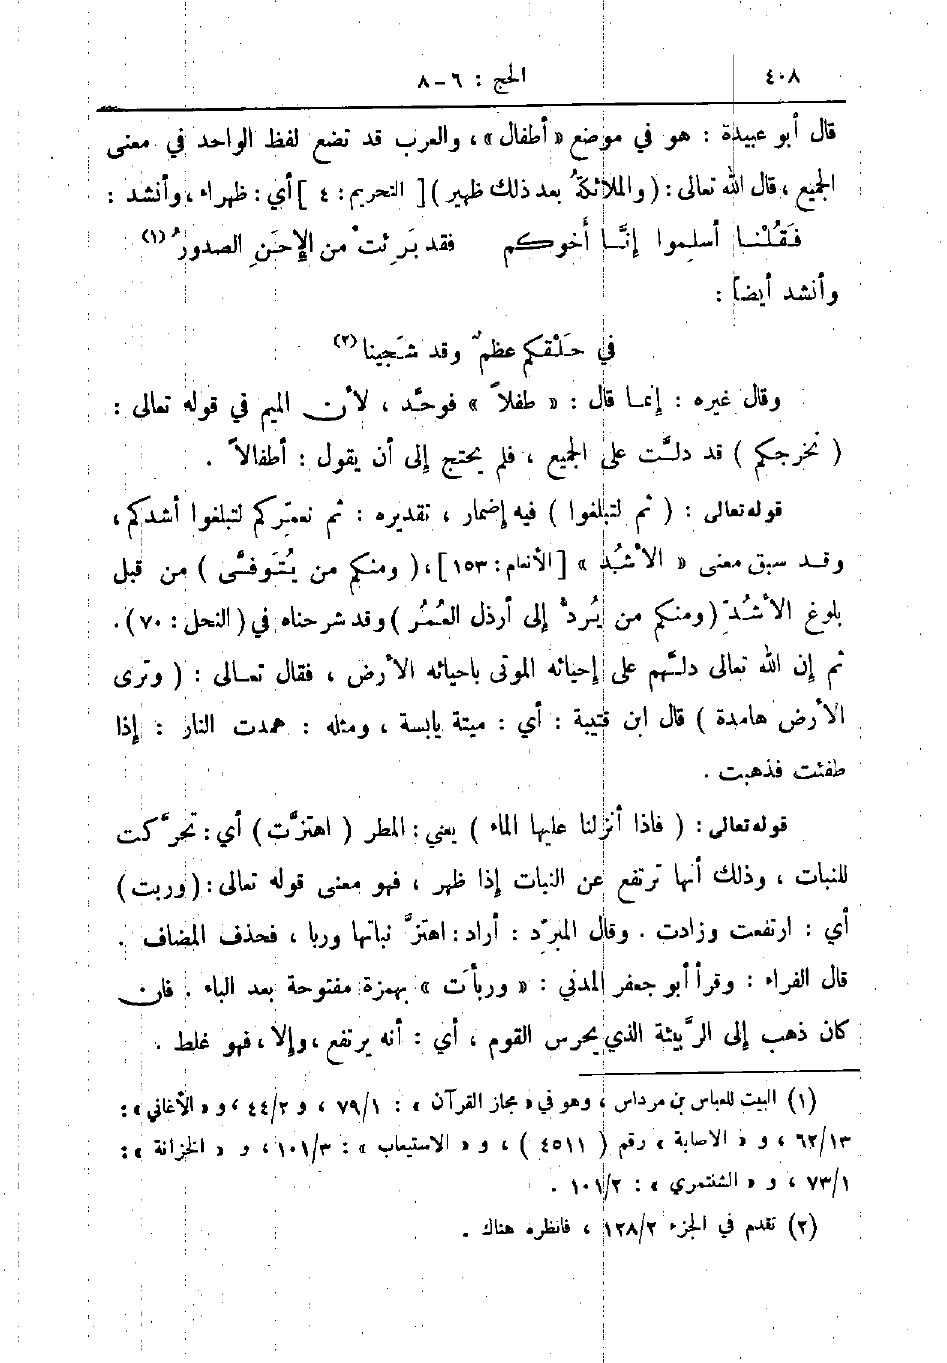 ٤٠٨
الحج : ٦ – ٨
قال أبو عبيدة : هو في موضع « أطفال » ، والعرب قد تضع لفظ الواحد في معنى
الجميع ، قال الله تعالى : ( والملائكةُ بعد ذلك ظهير ) [ التحريم : ٤ ] أي : ظهراء ، وأنشد :
فَقُلْنَـا أسلموا إنَّـا أخوكم فقد بَرِئتْ من الإِحَنِ الصدورُ (١)
وأنشد أيضاً :
في حَلْقكم عظمٌ وقد شَجينا (٢)
وقال غيره : إنما قال : « طفلاً » فوحَّد ، لأن الميم في قوله تعالى :
( نخرجكم ) قد دلَّت على الجميع ، فلم يحتج إلى أن يقول : أطفالاً .
قوله تعالى : ( ثم لتبلغوا ) فيه إضمار ، تقديره : ثم نعمِّركم لتبلغوا أشدكم ،
وقـد سبق معنى « الأشُد » [ الأنعام : ١٥٣ ] ، ( ومنكم من يُتَوفَّى ) من قبل
بلوغ الأشُدِّ ( ومنكم من يُردُّ إلى أرذل العُمُر ) وقد شرحناه في ( النحل : ٧٠ ) .
ثم إن الله تعالى دلَّهم على إحيائه الموتى باحيائه الأرض ، فقال تعـالى : ( وترى
الأرض هامدة ) قال ابن قتيبة : أي : ميتة يابسة ، ومثله : همدت النار : إذا
طفئت فذهبت .
قوله تعالى : ( فاذا أنزلنا عليها الماء ) يعني : المطر ( اهتزَّت ) أي : تحرَّكت
للنبات ، وذلك أنها ترتفع عن النبات إذا ظهر ، فهو معنى قوله تعالى : ( وربت )
أي : ارتفعت وزادت . وقال المبرِّد : أراد : اهتزَّ نباتها وربا ، فحذف المضاف .
قال الفراء : وقرأ أبو جعفر المدني : « وربأت » بهمزة مفتوحة بعد الباء . فان
كان ذهب إلى الرَّبيئة الذي يحرس القوم ، أي : أنه يرتفع ، وإلا ، فهو غلط .
(١) البيت للعباس بن مرداس ، وهو في « مجاز القرآن » : ٧٩/١ ، و ٤٤/٢ ، و « الأغاني » :
٦٢/١٣ ، و « الاصابة » رقم ( ٤٥١١ ) ، و « الاستيعاب » : ١٠١/٣ ، و « الخزانة » :
٧٣/١ ، و « الشنتمري » : ١٠١/٢ .
(٢) تقدم في الجزء ١٢٨/٢ ، فانظره هناك .